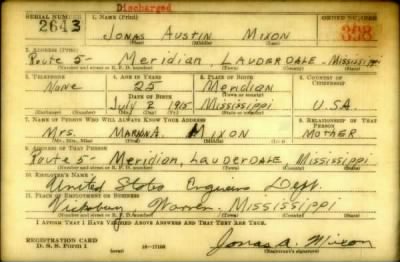 Discharged
SERIAL NUMBER 1. NAME (Print) ORDER NUMBER
2643 JONAS AUSTIN MIXON 338
(First) (Middle) (Last)
2. ADDRESS (Print)
Route 5- Meridian, LAUDERDALE, Mississippi
(Number and street or R. F. D. number) (Town) (County) (State)
3. TELEPHONE 4. AGE IN YEARS 5. PLACE OF BIRTH 6. COUNTRY OF CITIZENSHIP
None 25 Meridian
DATE OF BIRTH (Town or county)
July 2 1915 Mississippi U.S.A.
(Exchange) (Number) (Mo.) (Day) (Yr.) (State or country)
7. NAME OF PERSON WHO WILL ALWAYS KNOW YOUR ADDRESS 8. RELATIONSHIP OF THAT PERSON
Mrs. A. MIXON MOTHER
(Mr., Mrs., Miss) (First) (Middle) (Last)
9. ADDRESS OF THAT PERSON
Route 5- Meridian, LAUDERDALE, Mississippi
(Number and street or R. F. D. number) (Town) (County) (State)
10. EMPLOYER'S NAME
United States Engineers Dept.
11. PLACE OF EMPLOYMENT OR BUSINESS
Vicksburg, Warren, MISSISSIPPI
(Number and street or R. F. D. number) (Town) (County) (State)
I AFFIRM THAT I HAVE VERIFIED ABOVE ANSWERS AND THAT THEY ARE TRUE.
REGISTRATION CARD
D. S. S. Form 1 (over) 16-17105 Jonas A. Mixon
(Registrant's signature)